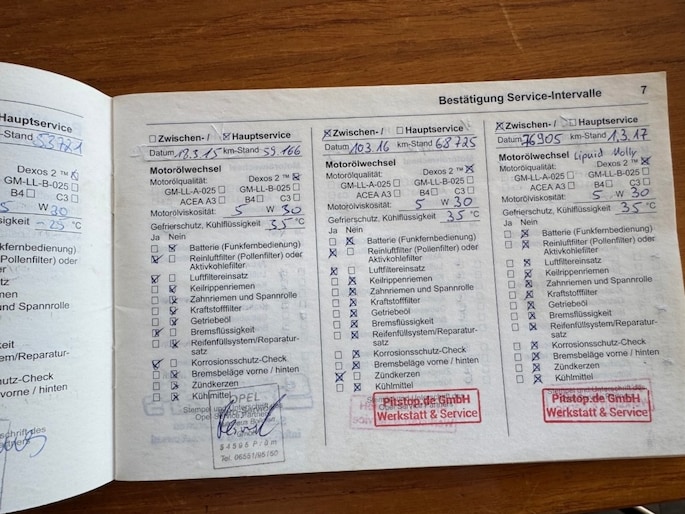 Bestätigung Service-Intervalle 7
Hauptservice
-Stand 53721
Dexos 2 ™
GM-LL-B-025
B4 C3
5 W 30
sigkeit -25 °C
nkfernbedienung)
enfilter) oder
en
und Spannrolle
keit
em/Reparatur-
utz-Check
vorne / hinten
Zwischen- / Hauptservice
Datum 18.3.15 km-Stand 59.166
Motorölwechsel
Motorölqualität: Dexos 2 ™
GM-LL-A-025 GM-LL-B-025
ACEA A3 B4 C3
Motorölviskosität: 5 W 30
Gefrierschutz, Kühlflüssigkeit 35 °C
Ja Nein
Batterie (Funkfernbedienung)
Reinluftfilter (Pollenfilter) oder
Aktivkohlefilter
Luftfiltereinsatz
Keilrippenriemen
Zahnriemen und Spannrolle
Kraftstofffilter
Getriebeöl
Bremsflüssigkeit
Reifenfüllsystem/Reparatur-
satz
Korrosionsschutz-Check
Bremsbeläge vorne / hinten
Zündkerzen
Kühlmittel
OPEL
Stempel und Unterschrift des
Opel Service Partners
54595 Prüm
Tel. 06551/95150
Zwischen- / Hauptservice
Datum 10.3.16 km-Stand 68725
Motorölwechsel
Motorölqualität: Dexos 2 ™
GM-LL-A-025 GM-LL-B-025
ACEA A3 B4 C3
Motorölviskosität: 5 W 30
Gefrierschutz, Kühlflüssigkeit 35 °C
Ja Nein
Batterie (Funkfernbedienung)
Reinluftfilter (Pollenfilter) oder
Aktivkohlefilter
Luftfiltereinsatz
Keilrippenriemen
Zahnriemen und Spannrolle
Kraftstofffilter
Getriebeöl
Bremsflüssigkeit
Reifenfüllsystem/Reparatur-
satz
Korrosionsschutz-Check
Bremsbeläge vorne / hinten
Zündkerzen
Kühlmittel
Pitstop.de GmbH
Werkstatt & Service
Zwischen- / Hauptservice
Datum 76905 km-Stand 1.3.17
Motorölwechsel Liquid Molly
Motorölqualität: Dexos 2 ™
GM-LL-A-025 GM-LL-B-025
ACEA A3 B4 C3
Motorölviskosität: 5 W 30
Gefrierschutz, Kühlflüssigkeit 35 °C
Ja Nein
Batterie (Funkfernbedienung)
Reinluftfilter (Pollenfilter) oder
Aktivkohlefilter
Luftfiltereinsatz
Keilrippenriemen
Zahnriemen und Spannrolle
Kraftstofffilter
Getriebeöl
Bremsflüssigkeit
Reifenfüllsystem/Reparatur-
satz
Korrosionsschutz-Check
Bremsbeläge vorne / hinten
Zündkerzen
Kühlmittel
Pitstop.de GmbH
Werkstatt & Service